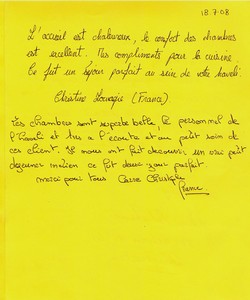 18.7.08
L'accueil est chaleureux, le confort des chambres
est excellent. Mes compliments pour la cuisine.
Ce fut un séjour parfait au sein de votre haveli.
Christine (France).
Les chambres sont superbe belle, le personnel de
l'haveli et tres a l'écoute et au petit soin de
ces client. Il nous ont fait decouvrir un vrai petit
dejeuner indien ce fut deux jour parfait.
merci pour tous
France